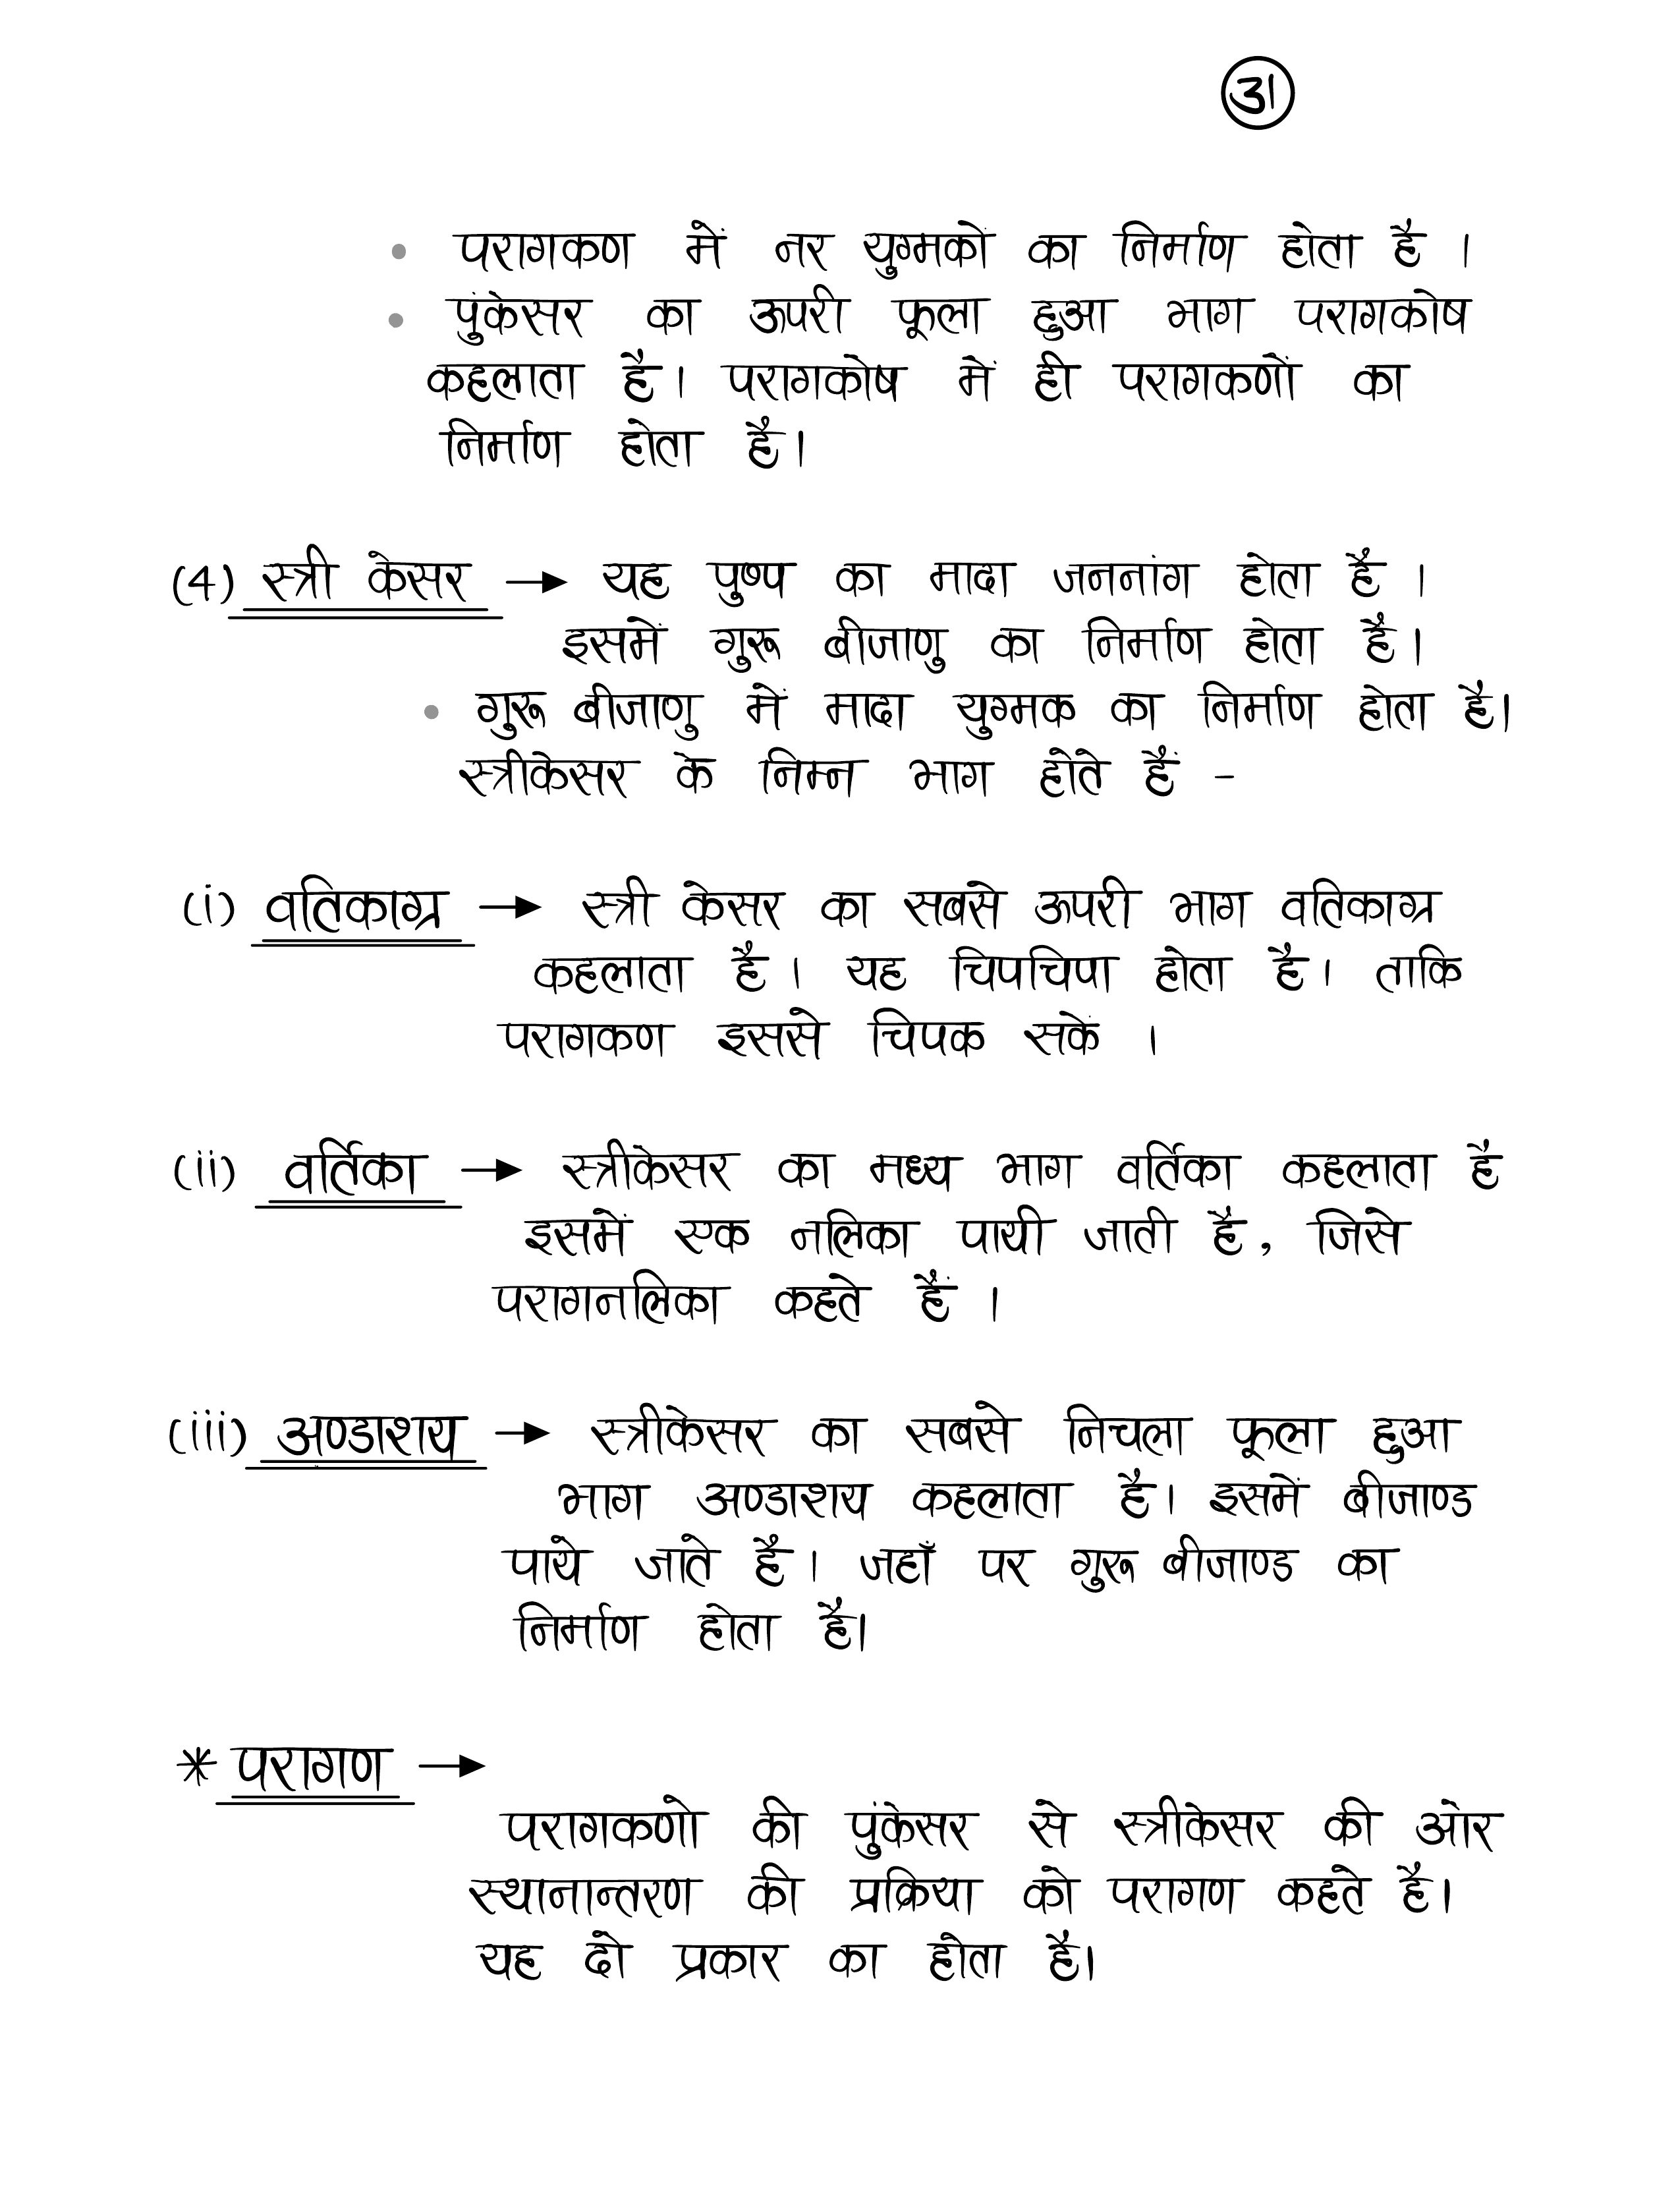 31
• परागकण में नर युग्मकों का निर्माण होता है ।
• पुंकेसर का ऊपरी फूला हुआ भाग परागकोष
कहलाता है। परागकोष में ही परागकणों का
निर्माण होता है।
(4) स्त्री केसर → यह पुष्प का मादा जननांग होता है ।
इसमें गुरू बीजाणु का निर्माण होता है।
• गुरू बीजाणु में मादा युग्मक का निर्माण होता है।
स्त्रीकेसर के निम्न भाग होते हैं -
(i) वतिकाग्र → स्त्री केसर का सबसे ऊपरी भाग वतिकाग्र
कहलाता है। यह चिपचिपा होता है। ताकि
परागकण इससे चिपक सकें ।
(ii) वर्तिका → स्त्रीकेसर का मध्य भाग वर्तिका कहलाता है
इसमें एक नलिका पायी जाती है, जिसे
परागनलिका कहते हैं ।
(iii) अण्डाशय → स्त्रीकेसर का सबसे निचला फूला हुआ
भाग अण्डाशय कहलाता है। इसमें बीजाण्ड
पाये जाते है। जहाँ पर गुरू बीजाण्ड का
निर्माण होता है।
* परागण →
परागकणो की पुंकेसर से स्त्रीकेसर की ओर
स्थानान्तरण की प्रक्रिया को परागण कहते है।
यह दो प्रकार का होता है।